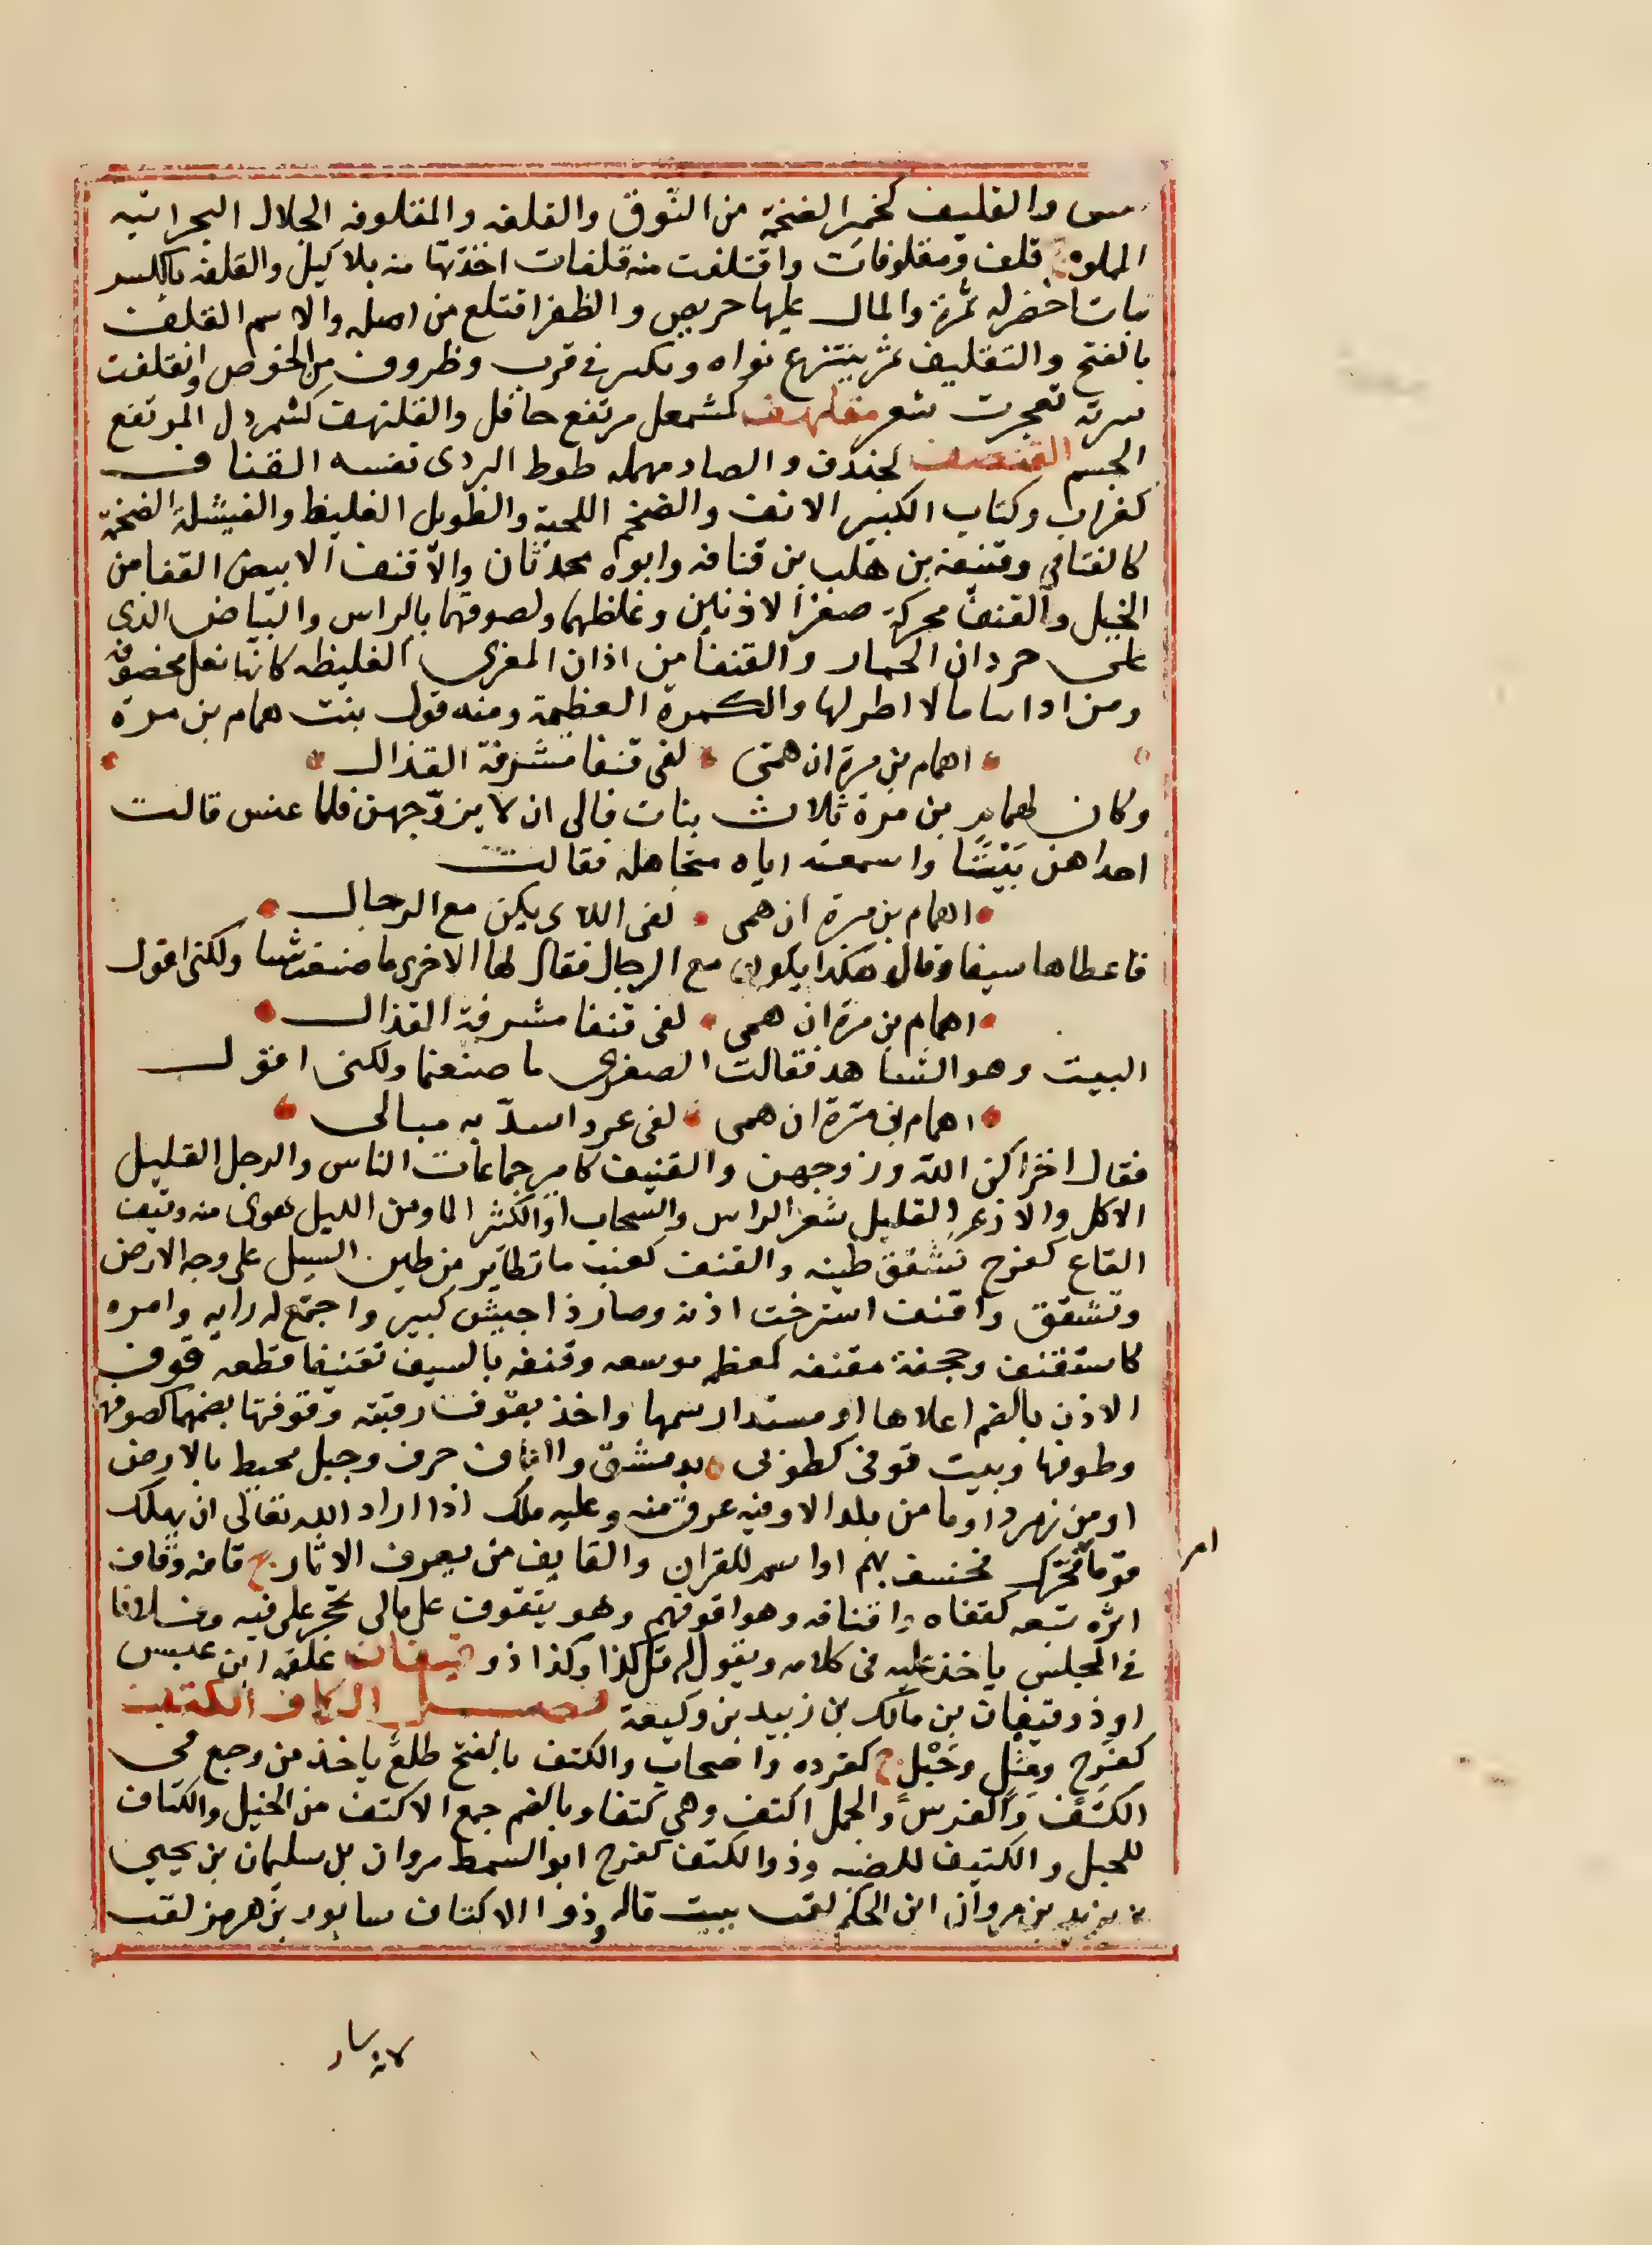 والقليف كخمير الضخمة من النّوق والقلفه والمقلوفه الجلال البحرانيه
المملوة ج قلف ومقلوفات واقتلفت منه قلفات اخذتها منه بلا كيل والقلفه بالكسر
نبات اخضر له ثمرة والمال عليها حريص والظفر اقتلع من اصله والاسم القلف
بالفتح والتقليف تمر ينتزع نواه ويكنز في قرب وظروف من الخوص وانقلفت
سرته تعجرت شعر مقلهف كشمعل مرتفع حافل والقلنهف كشمردل المرتفع
الجسم القنصف كخندف والصاد مهمله طوط البردى نفسه القناف
كغراب وكتاب الكبير الانف والضخم اللحية والطويل الغليظ والفيشلة الضخمة
كالقنافي وقنفة بن هلب بن قنافه وابوه محدثان والاقنف الابيض القفا من
الخيل والقنف محركة صغر الاذنين وغلظهما ولصوقهما بالراس والبياض الذى
على جردان الحمار والقنفا من اذان المعزى الغليظه كانها نعل مخصوفه
ومن اذاننا ما لا اطر لها والكمرة العظيمة ومنه قول بنت همام بن مرة
اهمام بن مرة ان همى لفى قنفا مشرفة القذال
وكان لهمام بن مرة ثلاث بنات فالى ان لا يزوّجهن فلما عنس قالت
احداهن بَيْتًا واسمعته اياه متجاهله فقالت
اهمام بن مرة ان همى لفى اللاى يكن مع الرجال
فاعطاها سيفا وقال هكذا يكون مع الرجال فقال لها الاخرى ما صنعت شيا ولكنى اقول
اهمام بن مرة ان همى لفى قنفا مشرفة القذال
البيت وهو الشاهد فقالت الصغرى ما صنعتما ولكنى اقول
اهمام بن مرة ان همى لفى عرد اسدّ به مبالى
فقال اخزاكن الله وزوجهن والقنيف كامير جماعات الناس والرجل القليل
الاكل والازعر القليل شعر الراس والسحاب او الكثير الما ومن الليل هوى منه وقنف
القاع كفرح تشقق طينه والقنف كعنب ما تطاير من طين السيل على وجه الارض
وتشقق واقنف استرخت اذنه وصار ذا جيش كبير واجتمع له رايه وامره
كاستقنف وجحفة مقنفه كمعظم موسعه وقنفه بالسيف تقنيفا قطعه قوف
الاذن بالضم اعلاها او مستدار سمها واخذ بقوف رقبته وقوفتها بضمهما كصوفها
وطوفها وبيت قوفى كطوبى ه بدمشق والقاف حرف وجبل محيط بالارض
او من زمرد او ما من بلد الا وفيه عرق منه وعليه ملك اذا اراد الله تعالى ان يهلك
قوما تحرك فخسف بهم او اسم للقران والقايف من يعرف الاثار ج قافه وقاف
امر
اثره تبعه كقفاه واقتافه وهو اقوفهم وهو يتقوف على مالى يحجر على فيه وفلانا
فى المجلس ياخذ عليه فى كلامه ويقول له قل كذا وكذا ذو قيفان علقه ابن عبس
او ذو قيفان بن مالك بن زبيد بن وكيعة فصل الكاف الكتف
كفَرِحٍ ومِثْلٍ وحَبْلٍ ج كقرده واصحاب والكتف بالفتح ظلع ياخذ من وجع فى
الكَتَف والفرس والجمل اكتف وهى كتفا وبالضم جمع الاكتف من الخيل والكتاف
للحبل والكتيف للضبه وذو الكتف كفرح ابو السمط مروان بن سليمان بن يحيى
بن يزيد بن مروان ابن الحكم لقب ببيت قاله وذو الاكتاف سابور بن هرمز لقب